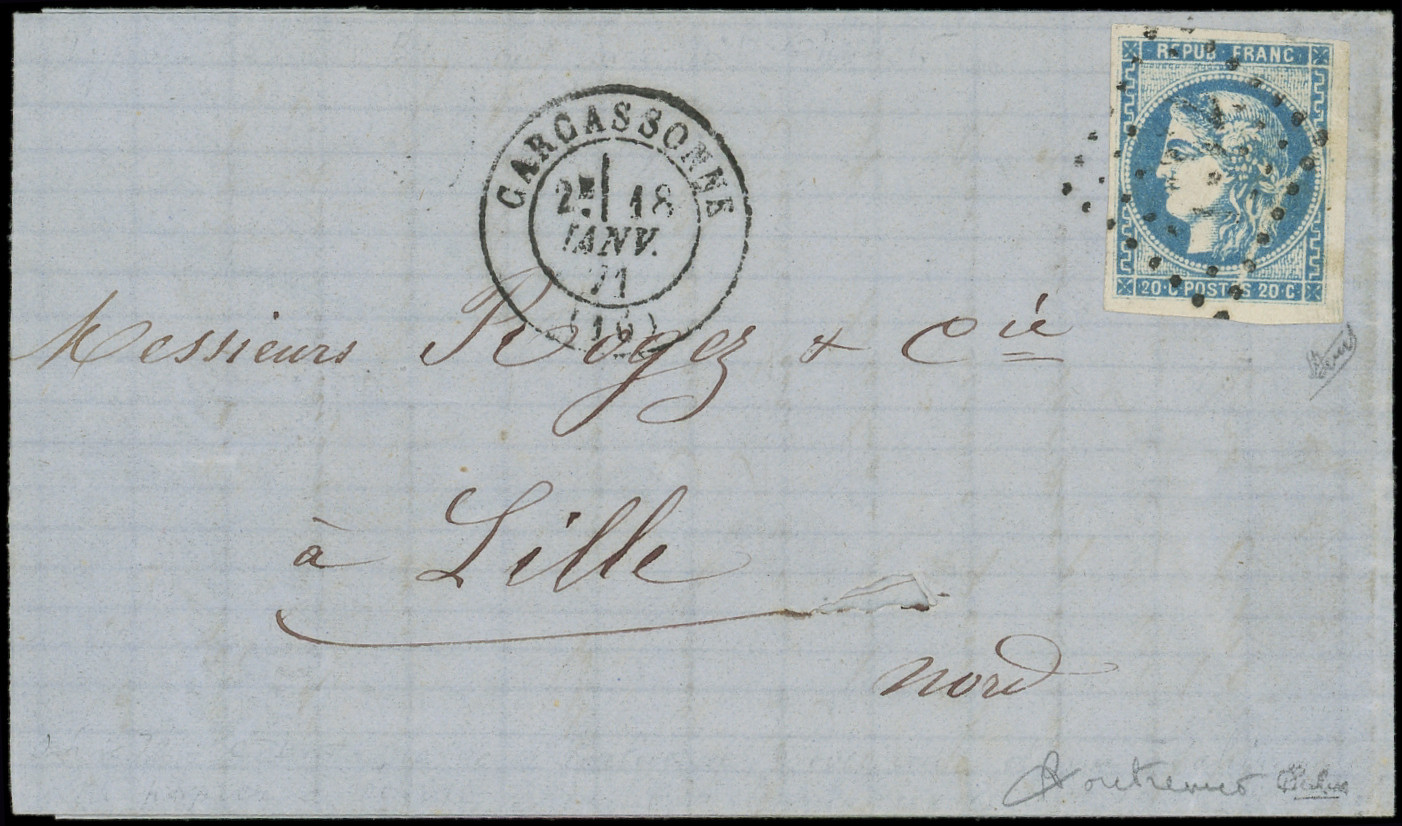 REPUB FRANC
20·C POSTES 20·C
CARCASSONNE
2E 18
JANV.
71
(10)
Messieurs Rogez & Cie
à Lille
nord